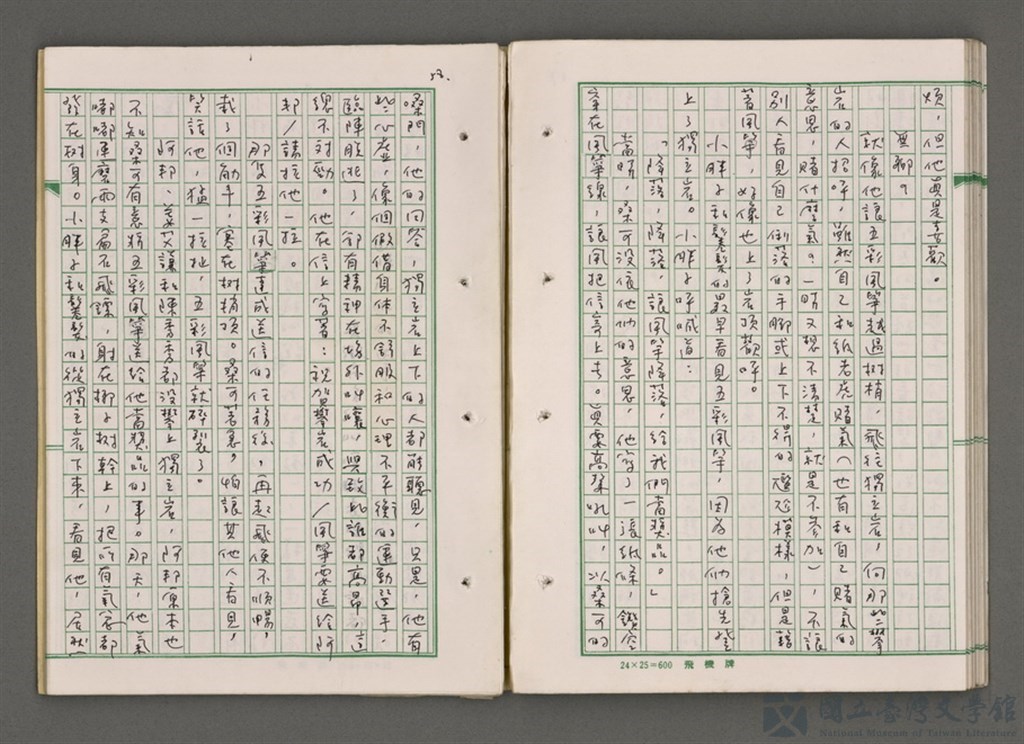 煩，但他真是喜歡。
無聊？
就像他讓五彩風箏越過樹梢，飛往獨立岩，向那些攀
岩的人招呼，雖然自己和紙老虎賭氣（也有和自己賭氣的
意思，賭什麼氣？一時又想不清楚，就是不參加），不讓
別人看見自己倒落的手腳或上下不得的尷尬模樣，但是藉
著風箏，好像也上了岩頂歡呼。
小胖子和鬈髮的最早看見五彩風箏，因為他倆搶先登
上了獨立岩。小胖子呼喊道：
「降落，降落，讓風箏降落，給我們當獎品。」
當時，桑可沒依他倆的意思，他寫了一張紙條，鑽空
穿在風箏線，讓風把信寄上去。真要高聲吼叫，以桑可的
58.
嗓門，他的回答，獨立岩上下的人都能聽見，只是，他有
些心虛，像個假借身体不舒服和心理不平衡的運動選手，
臨陣脫逃了，卻有精神在場外叫嚷，興致比誰都高昂，這
總不對勁。他在信上寫著：祝賀攀岩成功／風箏要送給阿
邦／請拉他一拉。
那隻五彩風箏達成送信的任務後，再起飛便不順暢，
栽了個觔斗，塞在樹梢頂。桑可著急，怕讓其他人看見，
笑話他，猛一拉扯，五彩風箏就碎裂了。
阿邦、姜艾謙和陳秀秀都沒攀上獨立岩，阿邦原本也
不知桑可有意將五彩風箏送給他當獎品的事。那天，他氣
嘟嘟連磨兩支扁石飛鏢，射在椰子樹幹上，把所有氣忿都
發在树身。小胖子和鬈髮的從獨立岩下來，看見他，居然
24×25=600 飛機牌
國立臺灣文學館
National Museum of Taiwan Literature